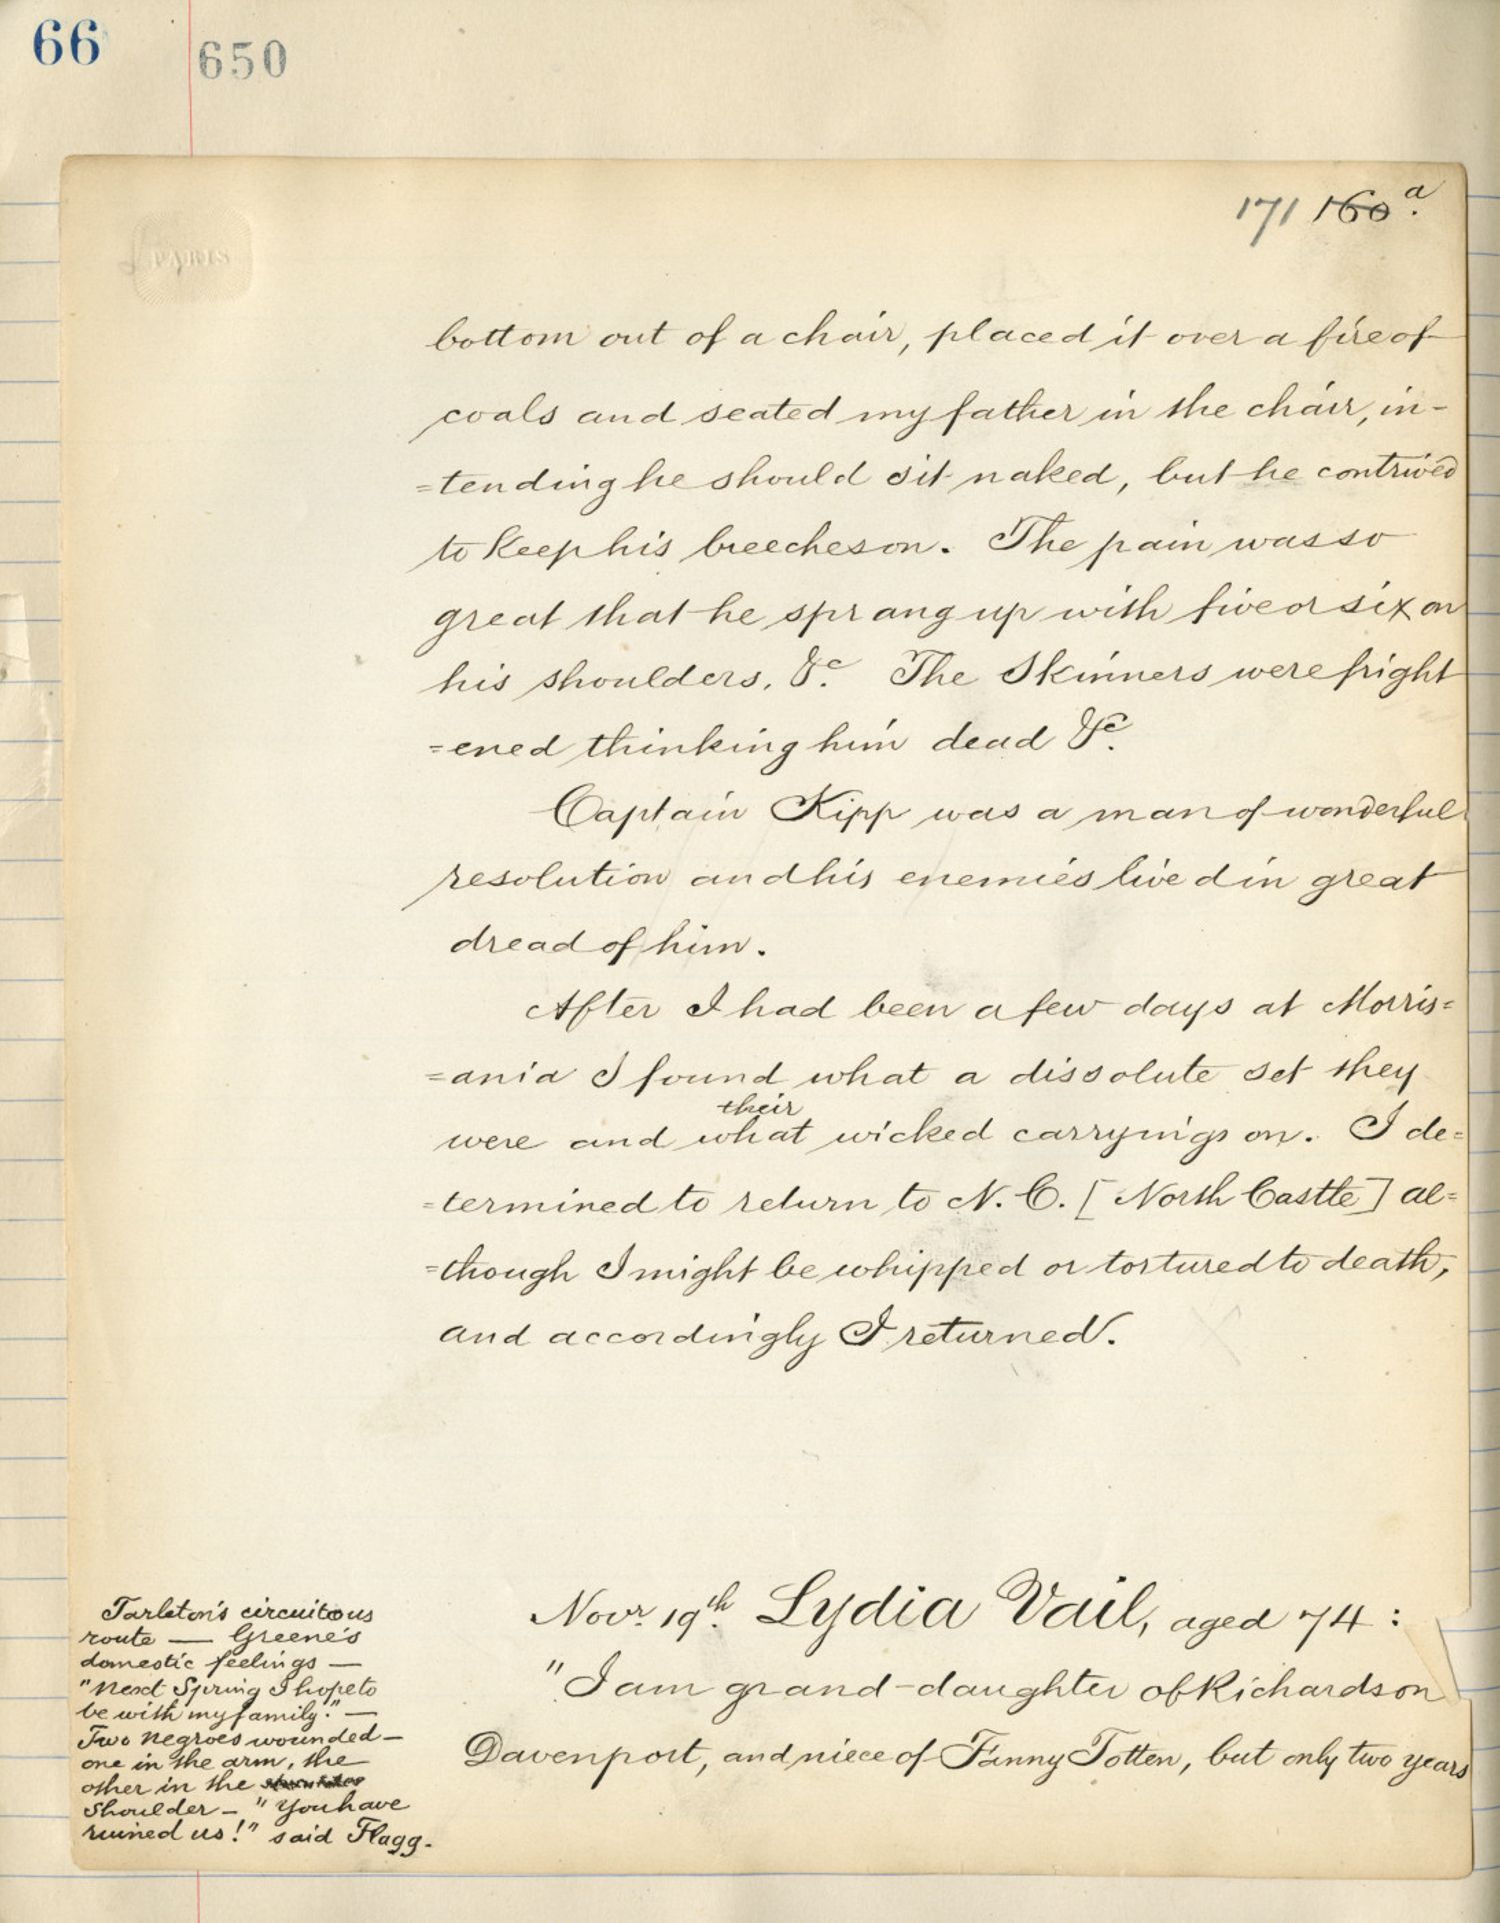 66
650
171 160 a.
PARIS
bottom out of a chair, placed it over a fire of
coals and seated my father in the chair, in-
=tending he should sit naked, but he contrived
to keep his breeches on. The pain was so
great that he sprang up with five or six on
his shoulders, &c. The Skinners were fright
=ened thinking him dead &c.
Captain Kipp was a man of wonderful
resolution and his enemies lived in great
dread of him.
After I had been a few days at Morris=
=ania I found what a dissolute set they
their
were and what wicked carryings on. I de=
=termined to return to N. C. [North Castle] al=
=though I might be whipped or tortured to death,
and accordingly I returned.
Novr. 19th. Lydia Vail, aged 74:
"I am grand-daughter of Richardson
Davenport, and niece of Fanny Totten, but only two years
Tarleton's circuitous
route — Greene's
domestic feelings —
"Next Spring I hope to
be with my family." —
Two negroes wounded —
one in the arm, the
other in the
shoulder — "You have
ruined us!" said Flagg.